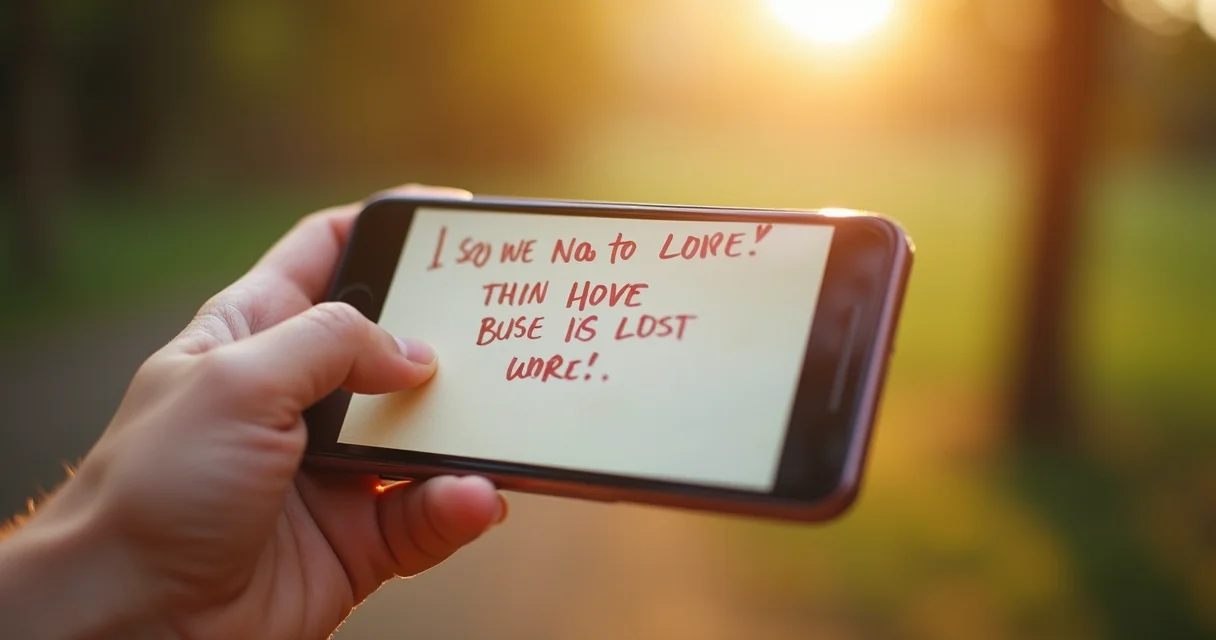 I SO WE No to LORE!
THIN HOVE
BUSE IS LOST
WORE!.